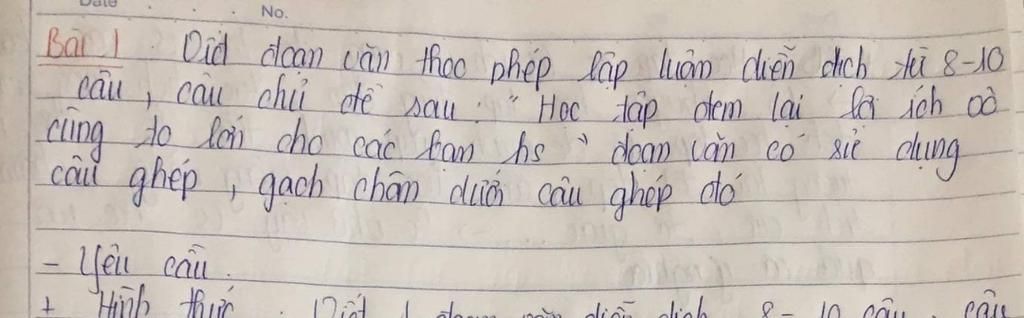 Date No.
Bài 1. Viết đoạn văn theo phép lập luận diễn dịch từ 8-10
câu, câu chủ đề sau: "Học tập đem lại lợi ích vô
cùng to lớn cho các bạn hs" đoạn văn có sử dụng
câu ghép, gạch chân dưới câu ghép đó
- Yêu cầu.
+ Hình thức. Viết 1 đoạn văn diễn dịch 8-10 câu, câu